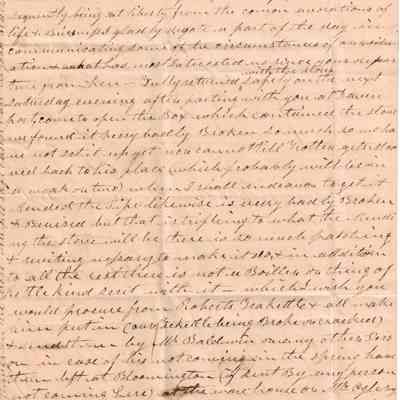 sequently being at liberty from the common avocations of
life & business gladly devote a part of the day in
communicating some of the circumstances of our situ
ation & what has most interested us since your depar
ture from here - Tully returned safely with the stove on the next
Saturday evening after parting with you at
have come to open the Box which contained the stove
we found it very badly Broken so much so we ha
ve not set it up yet nor cannot till Trotter gets down
well back to his place which probably will be in
a week or two) when I shall endeavor to get it
mended the Pipe likewise is very badly Broken
& Bruised but that is trifling to what the mendi
ng the stove will be there is so much patching
& riviting necessary to make it do, & in addition
to all the rest there is not a Boiler or thing of
the kind sent with it - which I wish you
would procure from Roberts Teakettle & all make
him put in (our Teakettle being Broke or cracked)
& send them by Mr Baldwin or any other Pers
on in case of his not coming in the Spring have
them left at Bloomington (if sent By any person
not coming here) at the ware house of Mr Ogles